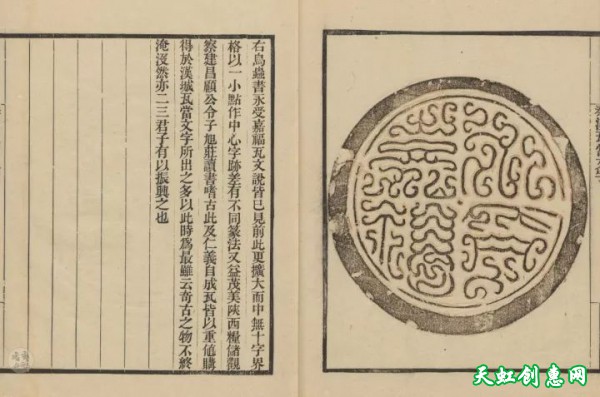 永受嘉福
右鳥蟲書永受嘉福瓦文說皆已見前此更擴大而中無十字界
格以一小點作中心字跡差有不同篆法又益茂美陝西糧儲觀
察建昌顧公令子旭莊讀書嗜古此及仁義自成瓦皆以重值購
得於漢城瓦當文字所出之多以此時爲最雖云奇古之物不終
淹沒然亦二三君子有以振興之也
天虹创惠网